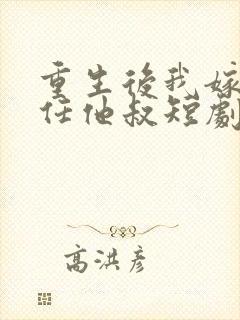 重生後我嫁
任他叔短劇
高洪彥